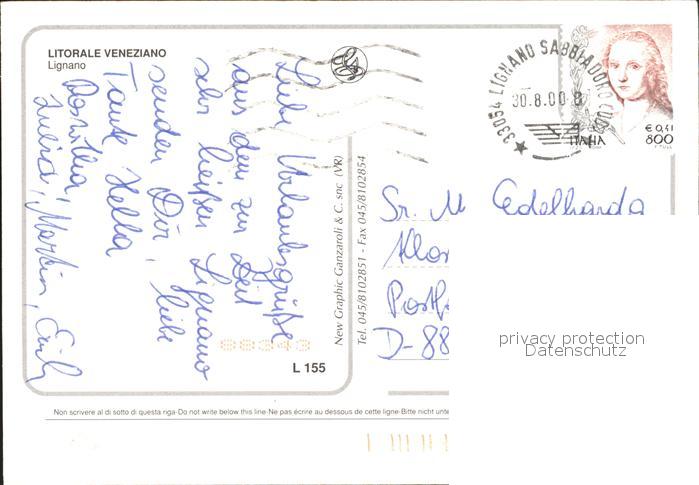 LITORALE VENEZIANO
Lignano
Liebe Urlaubsgrüße
aus dem zur Zeit
sehr heißen Lignano
senden Dir, liebe
Tante Hella
Julia, Martin, Emily
New Graphic Ganzaroli & C. snc (VR)
Tel. 045/8102851 - Fax 045/8102854
L 155
88343
33054 LIGNANO SABBIADORO (UD)
30.8.00-8
€ 0,41
ITALIA 800
Sr. M. Edelharda
Klos
Postf
D-88
privacy protection
Datenschutz
Non scrivere al di sotto di questa riga-Do not write below this line-Ne pas écrire au dessous de cette ligne-Bitte nicht unte